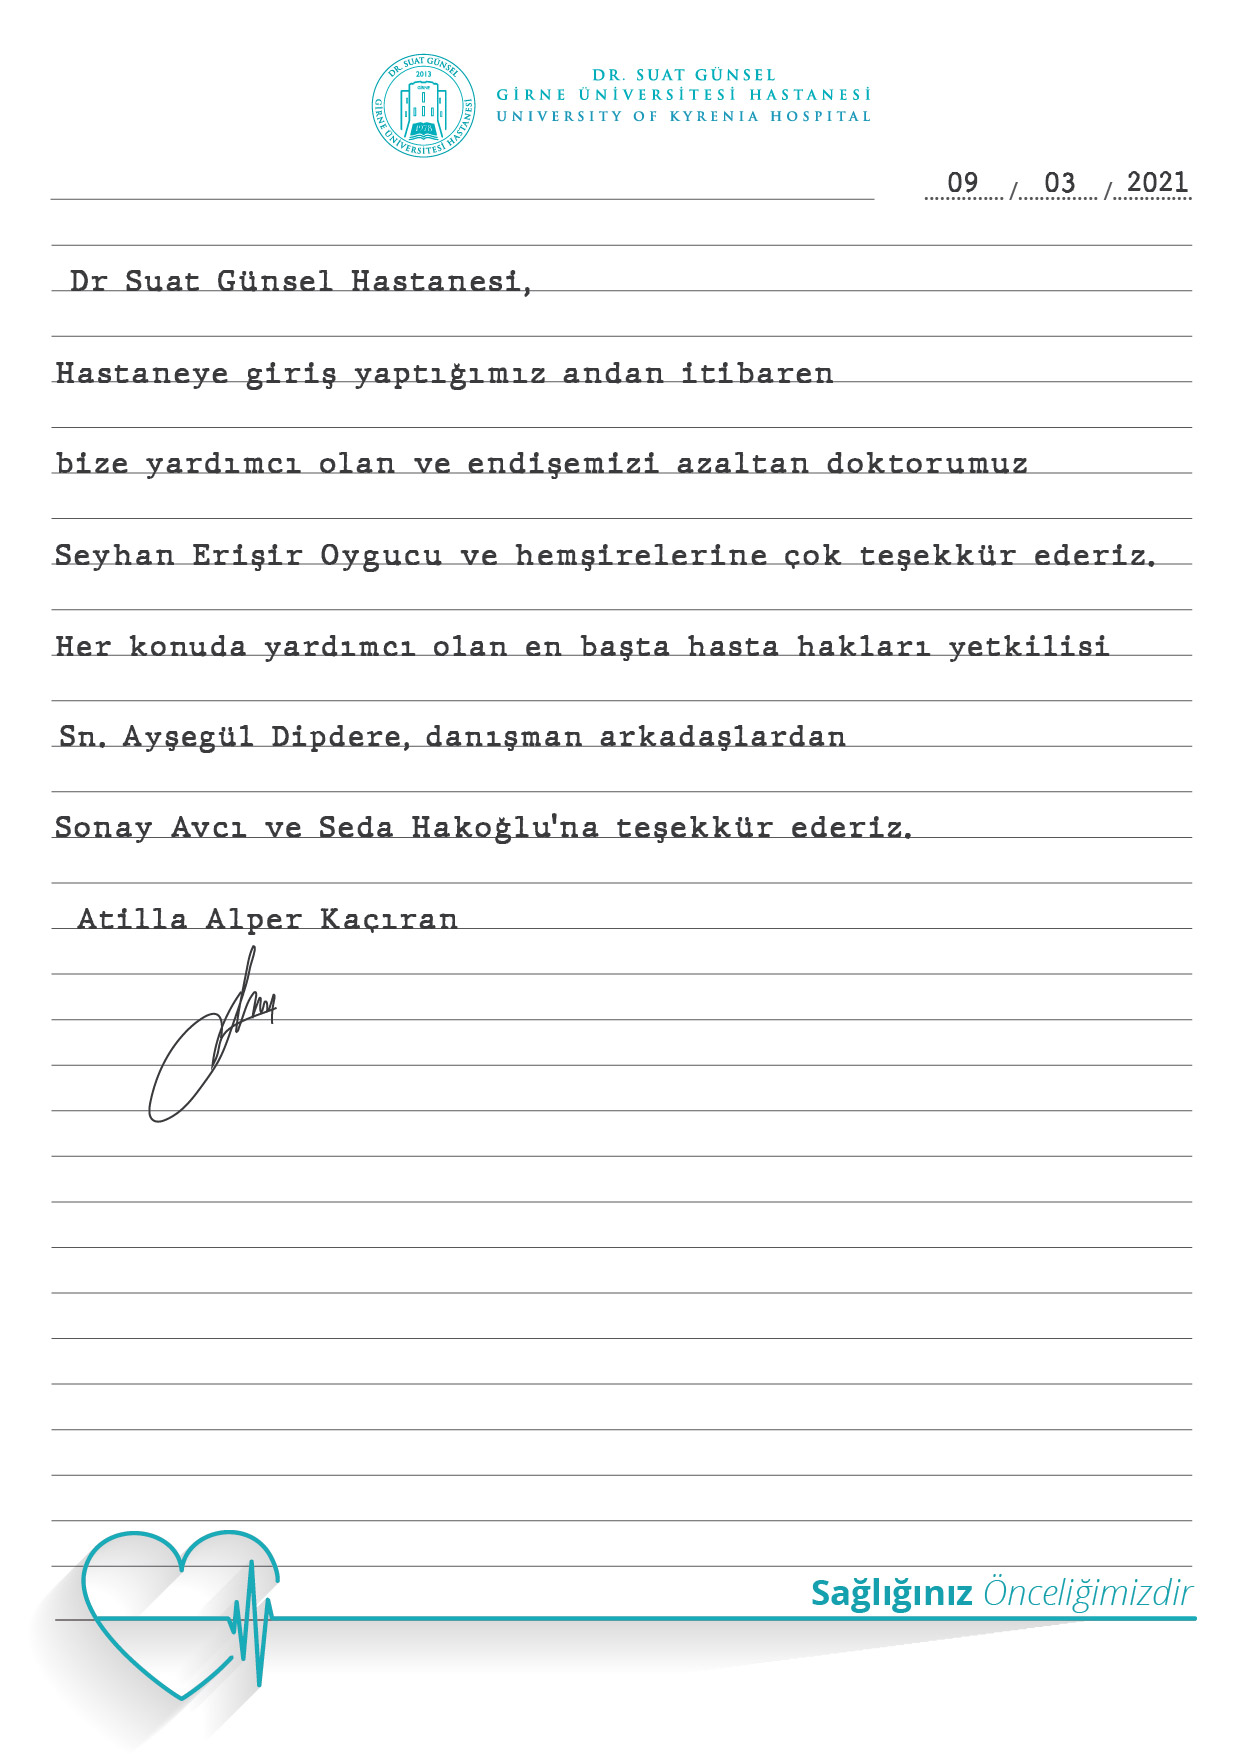 DR. SUAT GÜNSEL
2013
GİRNE
1978
GİRNE ÜNİVERSİTESİ HASTANESİ
DR. SUAT GÜNSEL
GİRNE ÜNİVERSİTESİ HASTANESİ
UNIVERSITY OF KYRENIA HOSPITAL
09 / 03 / 2021
Dr Suat Günsel Hastanesi,
Hastaneye giriş yaptığımız andan itibaren
bize yardımcı olan ve endişemizi azaltan doktorumuz
Seyhan Erişir Oygucu ve hemşirelerine çok teşekkür ederiz.
Her konuda yardımcı olan en başta hasta hakları yetkilisi
Sn. Ayşegül Dipdere, danışman arkadaşlardan
Sonay Avcı ve Seda Hakoğlu'na teşekkür ederiz.
Atilla Alper Kaçıran
Sağlığınız Önceliğimizdir